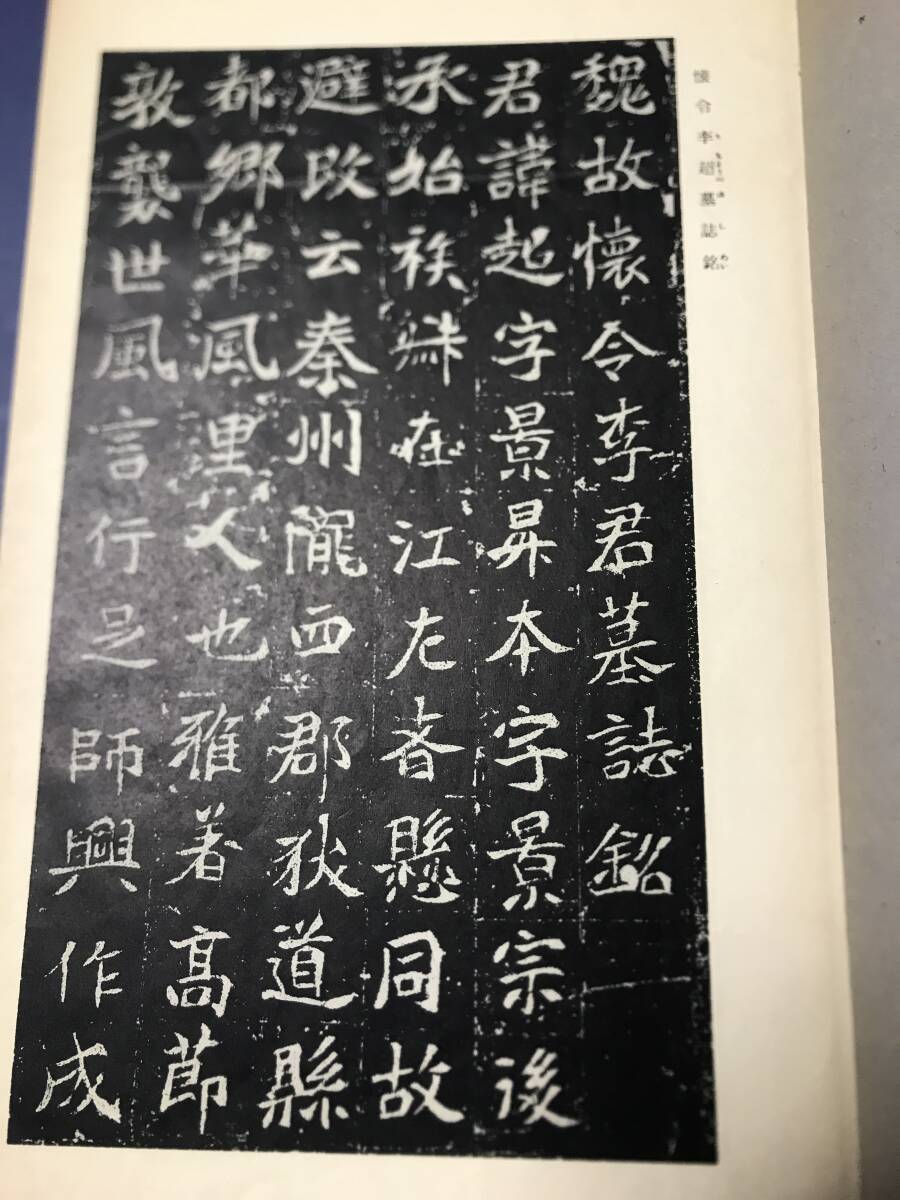 懐令李超墓誌銘
魏故懷令李君墓誌銘
君諱起字景昇本字景宗後
承始族㛮在江左者懸同故
避改云秦州隴西郡狄道縣
都鄉華風里人也雅著高節
敦襲世風言行足師興作成